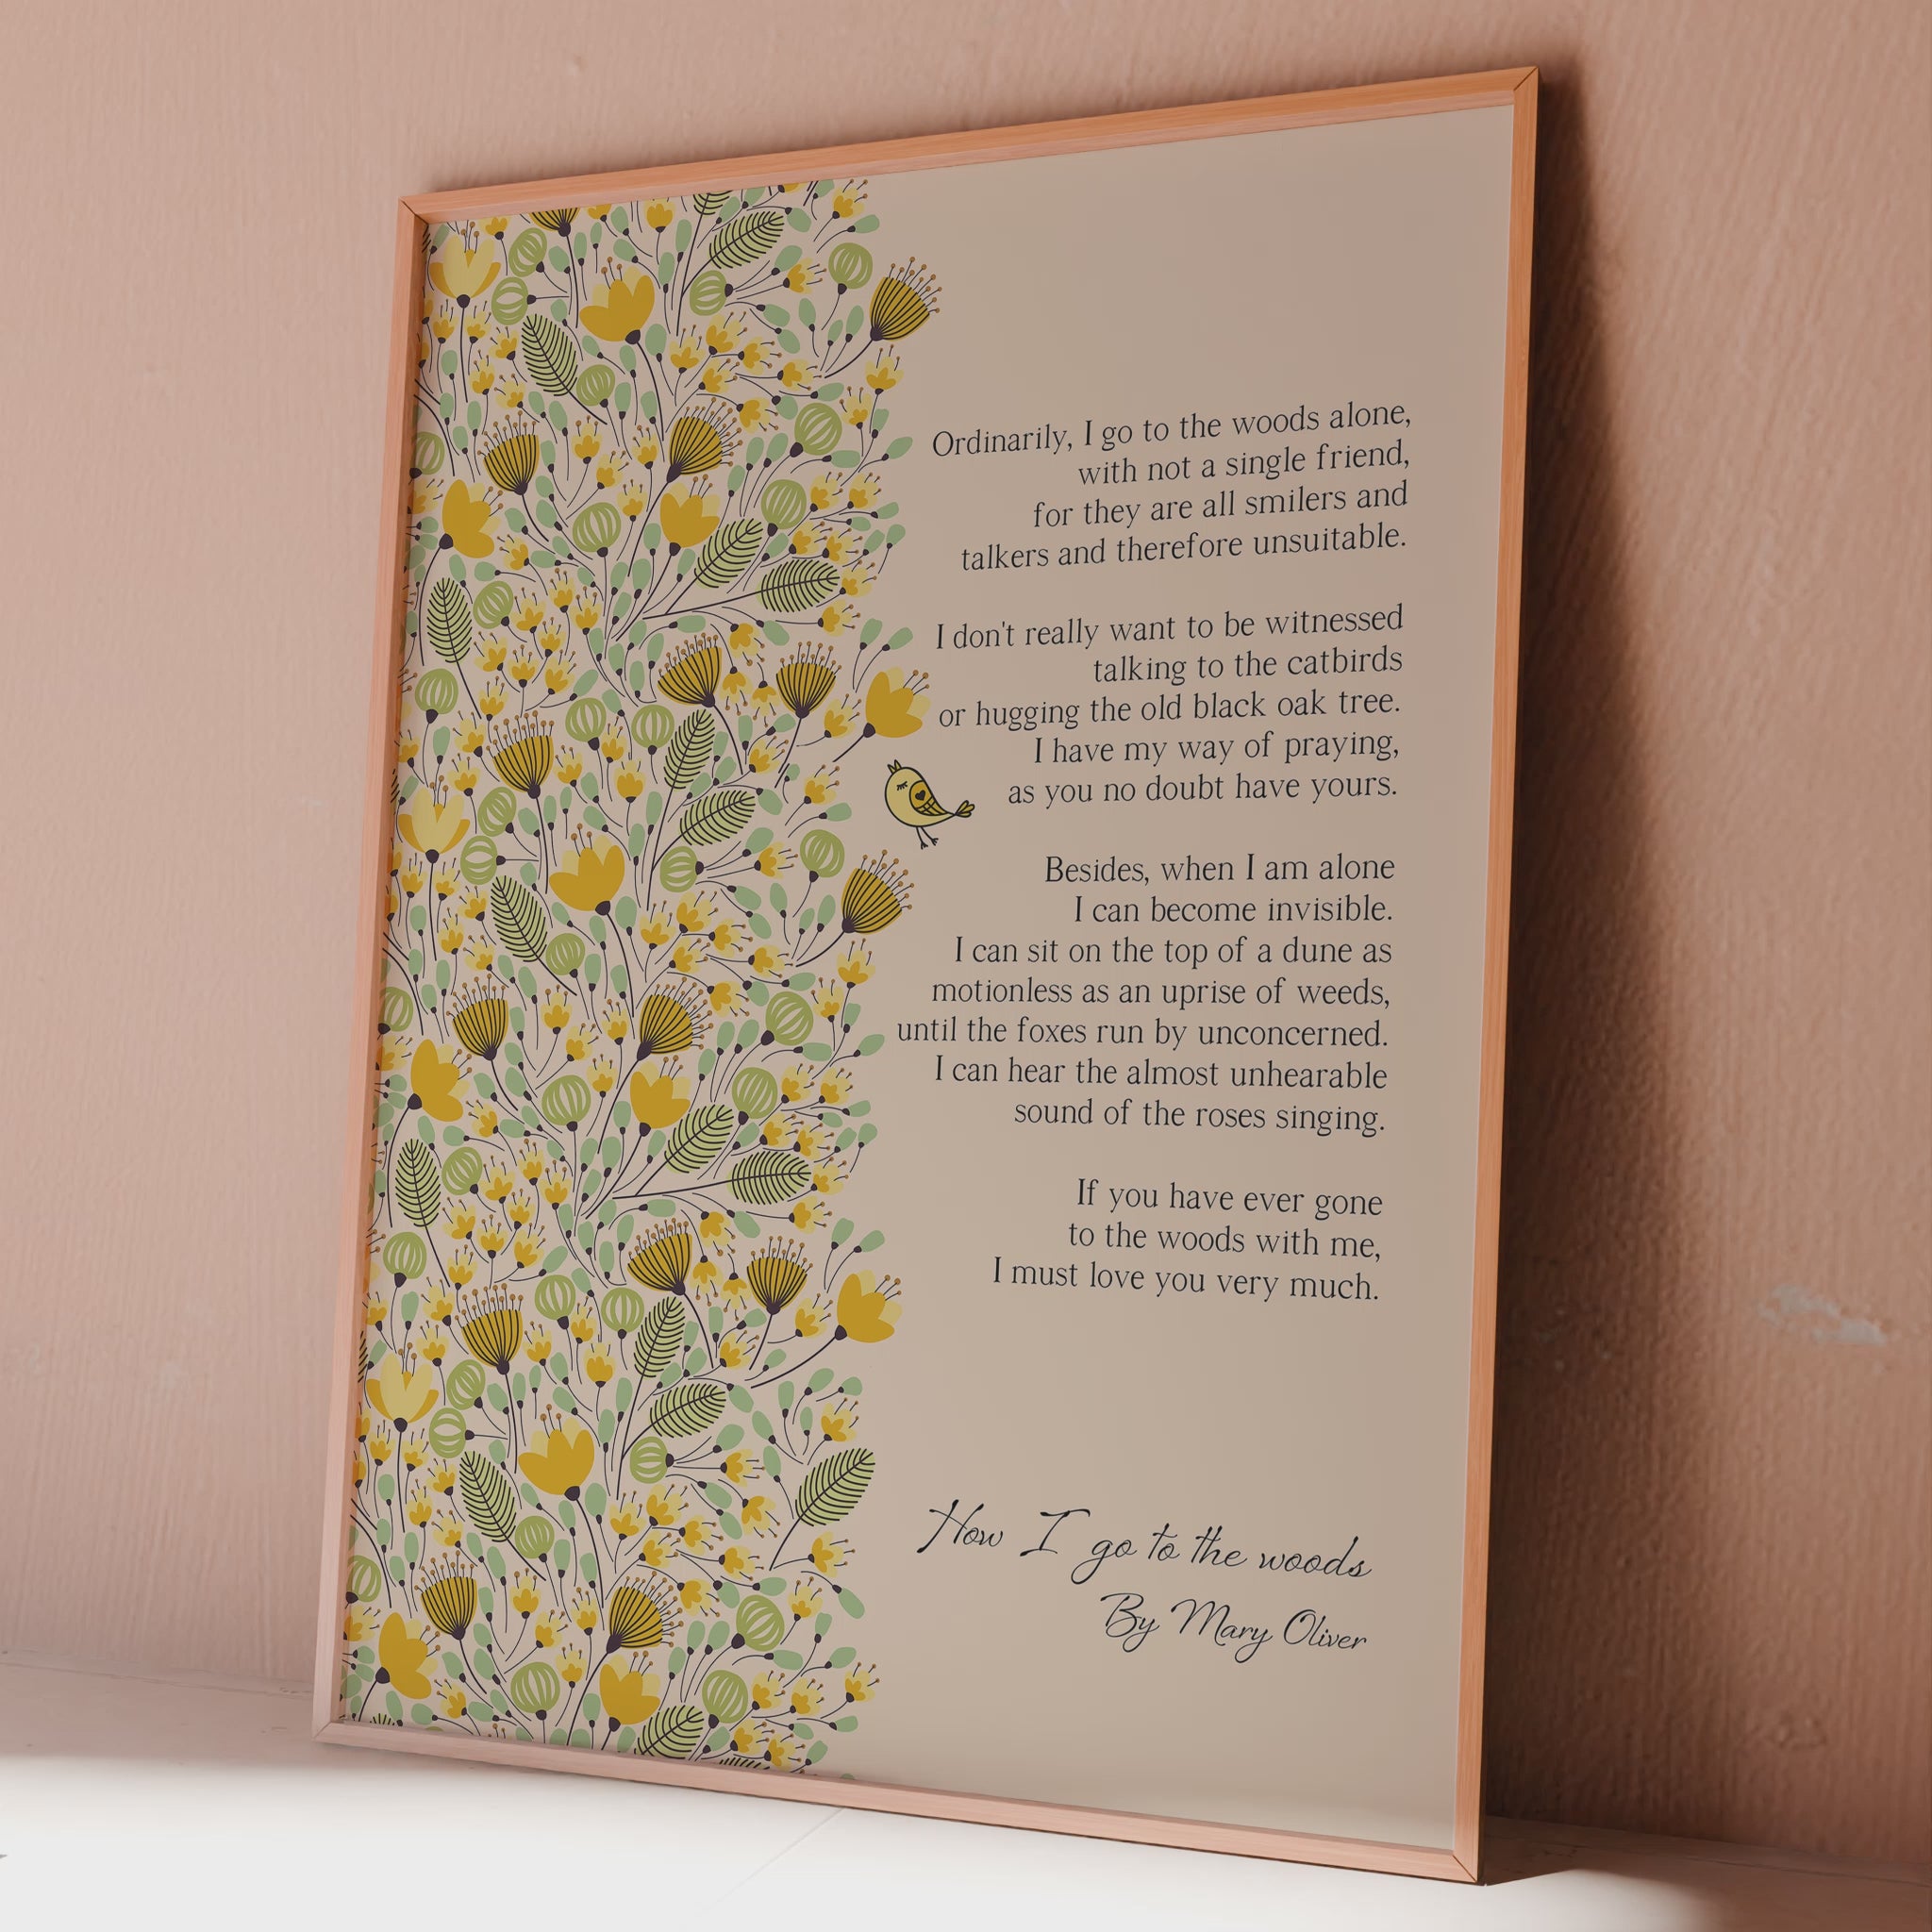 Ordinarily, I go to the woods alone,
with not a single friend,
for they are all smilers and
talkers and therefore unsuitable.
I don't really want to be witnessed
talking to the catbirds
or hugging the old black oak tree.
I have my way of praying,
as you no doubt have yours.
Besides, when I am alone
I can become invisible.
I can sit on the top of a dune as
motionless as an uprise of weeds,
until the foxes run by unconcerned.
I can hear the almost unhearable
sound of the roses singing.
If you have ever gone
to the woods with me,
I must love you very much.
How I go to the woods
By Mary Oliver